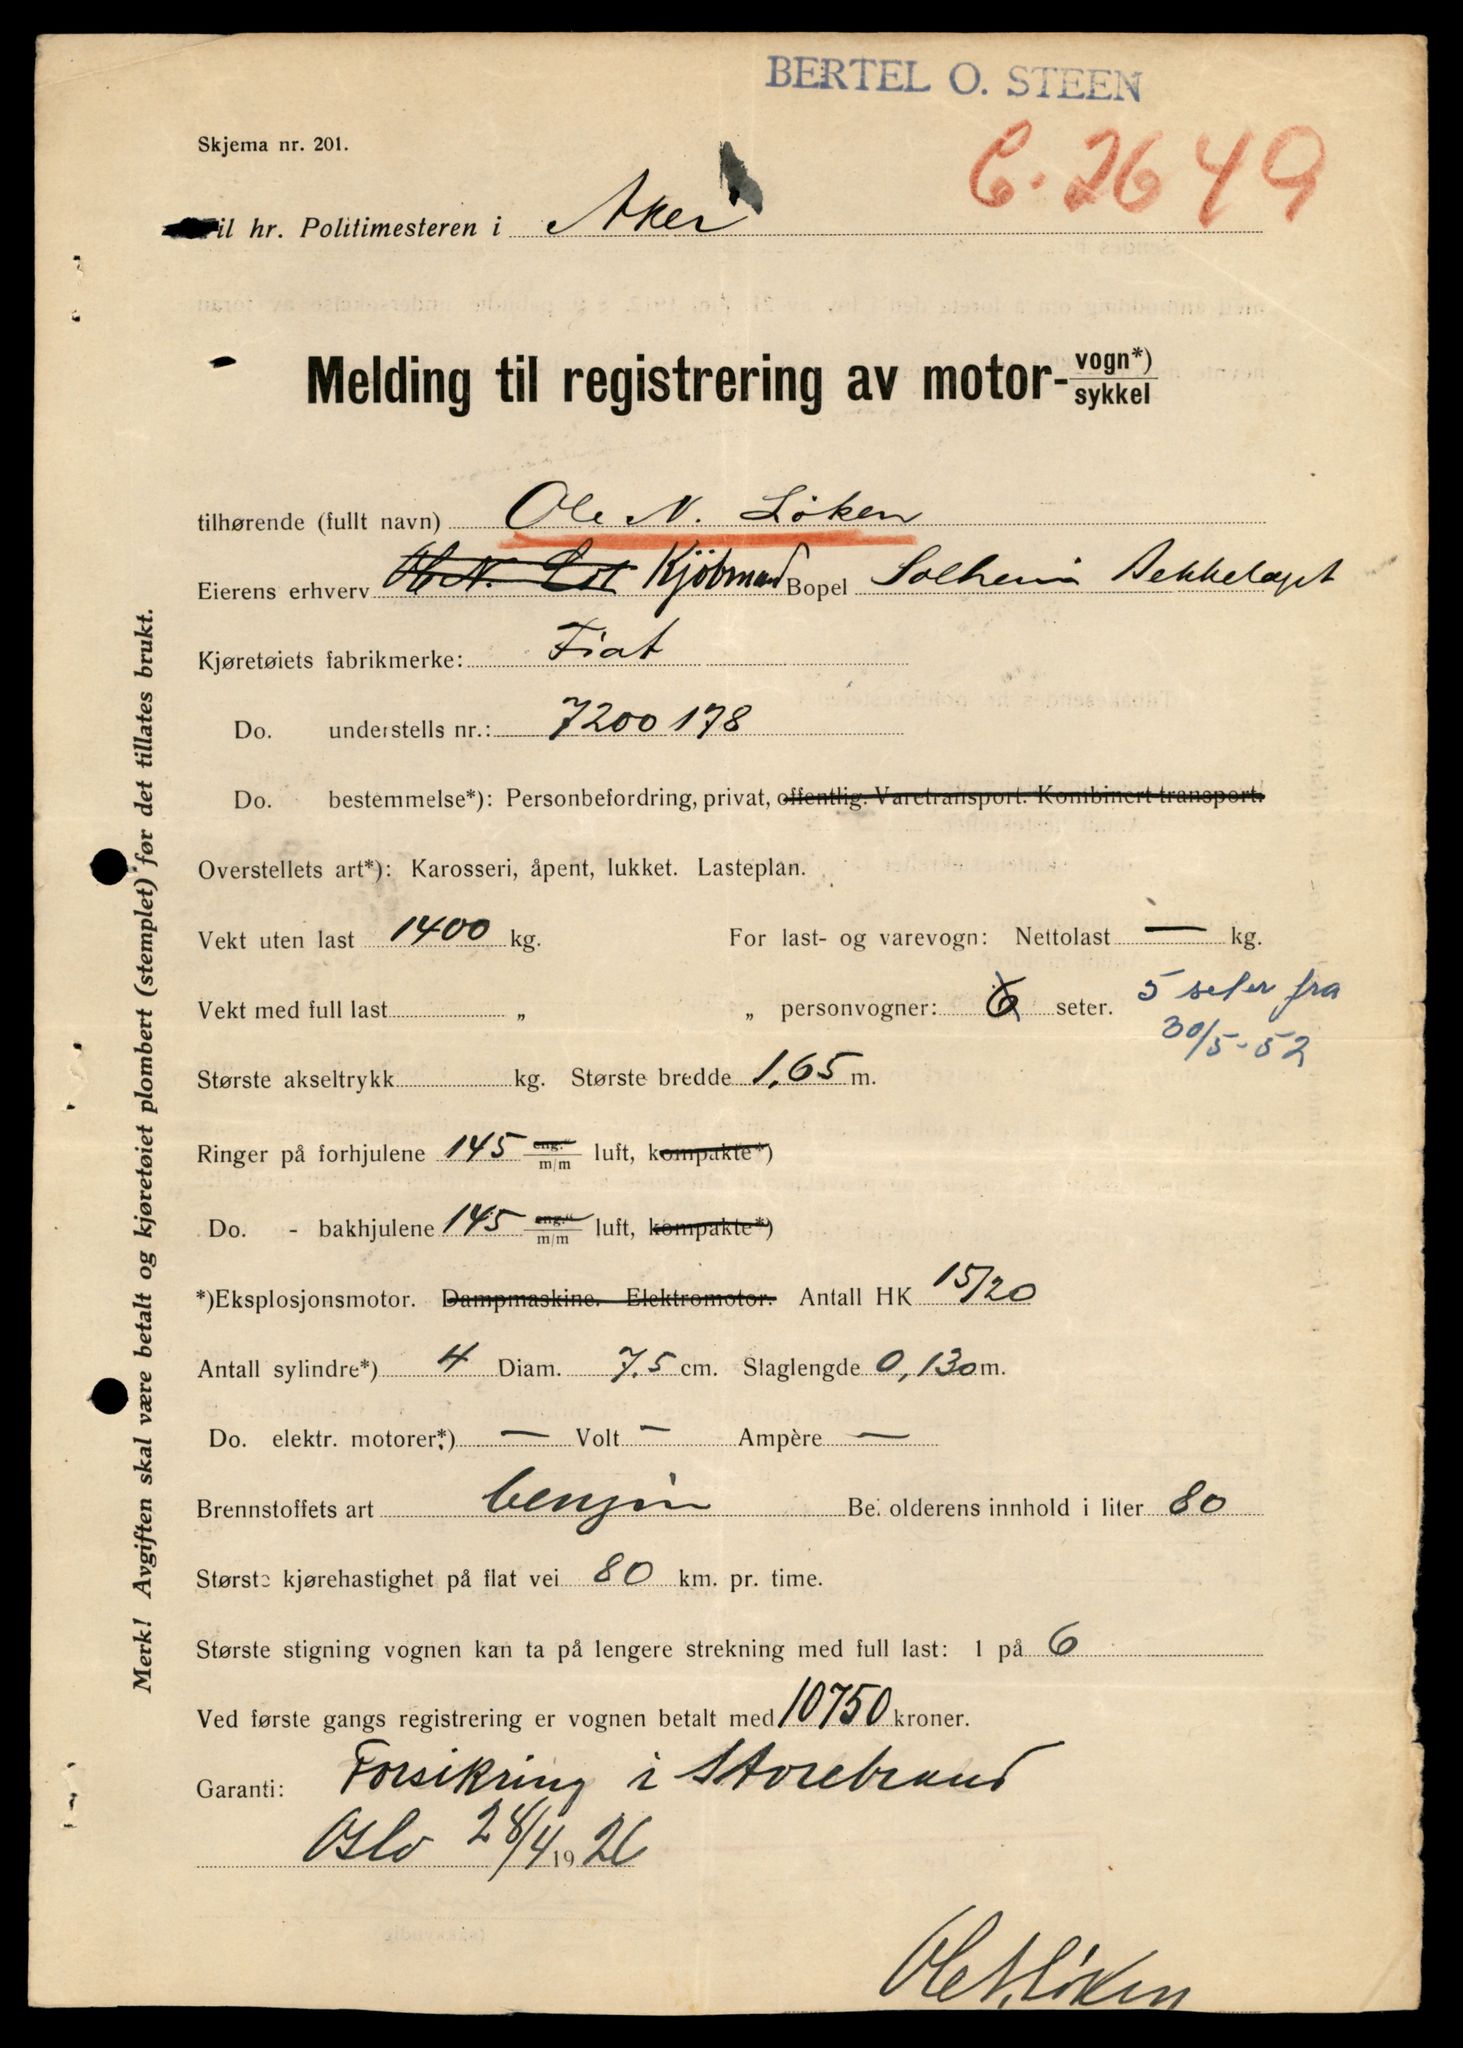 BERTEL O. STEEN
C. 2649
Skjema nr. 201.
Til hr. Politimesteren i Aker
Melding til registrering av motor- vogn*) sykkel
tilhørende (fullt navn) Ole N. Løken
Eierens erhverv Kjöbmand Bopel Solheim Bekkelaget
Kjøretøiets fabrikmerke: Fiat
Do. understells nr.: 7200178
Do. bestemmelse*): Personbefordring, privat, offentlig. Varetransport. Kombinert transport.
Overstellets art*): Karosseri, åpent, lukket. Lasteplan.
Vekt uten last 1400 kg. For last- og varevogn: Nettolast — kg.
Vekt med full last „ „ personvogner: 6 seter. 5 seter fra
30/5-52
Største akseltrykk kg. Største bredde 1,65 m.
Ringer på forhjulene 145 eng." m/m luft, kompakte*)
Do. - bakhjulene 145 eng." m/m luft, kompakte*)
*)Eksplosjonsmotor. Dampmaskine. Elektromotor. Antall HK 15/20
Antall sylindre*) 4 Diam. 7.5 cm. Slaglengde 0,130 m.
Do. elektr. motorer*) — Volt — Ampère —
Brennstoffets art benzin Be. olderens innhold i liter 80
Største kjørehastighet på flat vei 80 km. pr. time.
Største stigning vognen kan ta på lengere strekning med full last: 1 på 6
Ved første gangs registrering er vognen betalt med 10750 kroner.
Garanti: Forsikring i Storebrand
Oslo 28/4 1926
Ole N. Løken
Merk! Avgiften skal være betalt og kjøretøiet plombert (stemplet) før det tillates brukt.